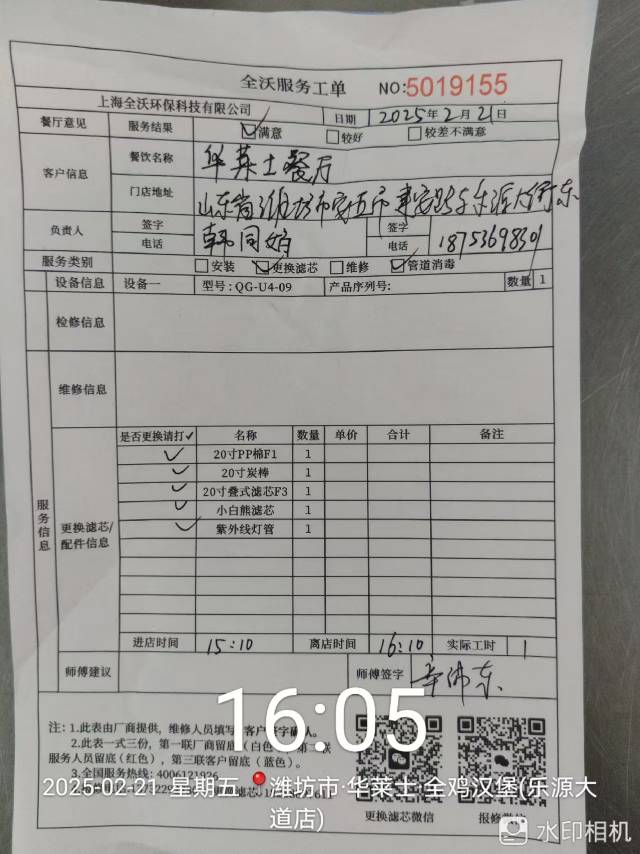 全沃服务工单 NO:5019155
上海全沃环保科技有限公司 日期 2025年2月21日
餐厅意见 服务结果 满意 较好 较差不满意
客户信息 餐饮名称 华莱士餐厅
门店地址 山东省潍坊市安丘市 建安路与乐源大街东
负责人 签字 韩同娟 签字
电话 电话 18753698301
服务类别 安装 更换滤芯 维修 管道消毒
设备信息 设备一 型号:QG-U4-09 产品序列号: 数量 1
检修信息
维修信息
服务信息
更换滤芯/配件信息
是否更换请打✓ 名称 数量 单价 合计 备注
✓ 20寸PP棉F1 1
✓ 20寸炭棒 1
✓ 20寸叠式滤芯F3 1
✓ 小白熊滤芯 1
✓ 紫外线灯管 1
进店时间 15:10 离店时间 16:10 实际工时 1
师傅建议 师傅签字
16:05
注:1.此表由厂商提供,维修人员填写,客户签字确认。
2.此表一式三份,第一联厂商留底(白色)
服务人员留底(红色),第三联客户留底(蓝色)。
3.全国服务热线:4006121926
2025-02-21 星期五 潍坊市·华莱士·全鸡汉堡(乐源大
道店)
更换滤芯微信 报修微信
水印相机